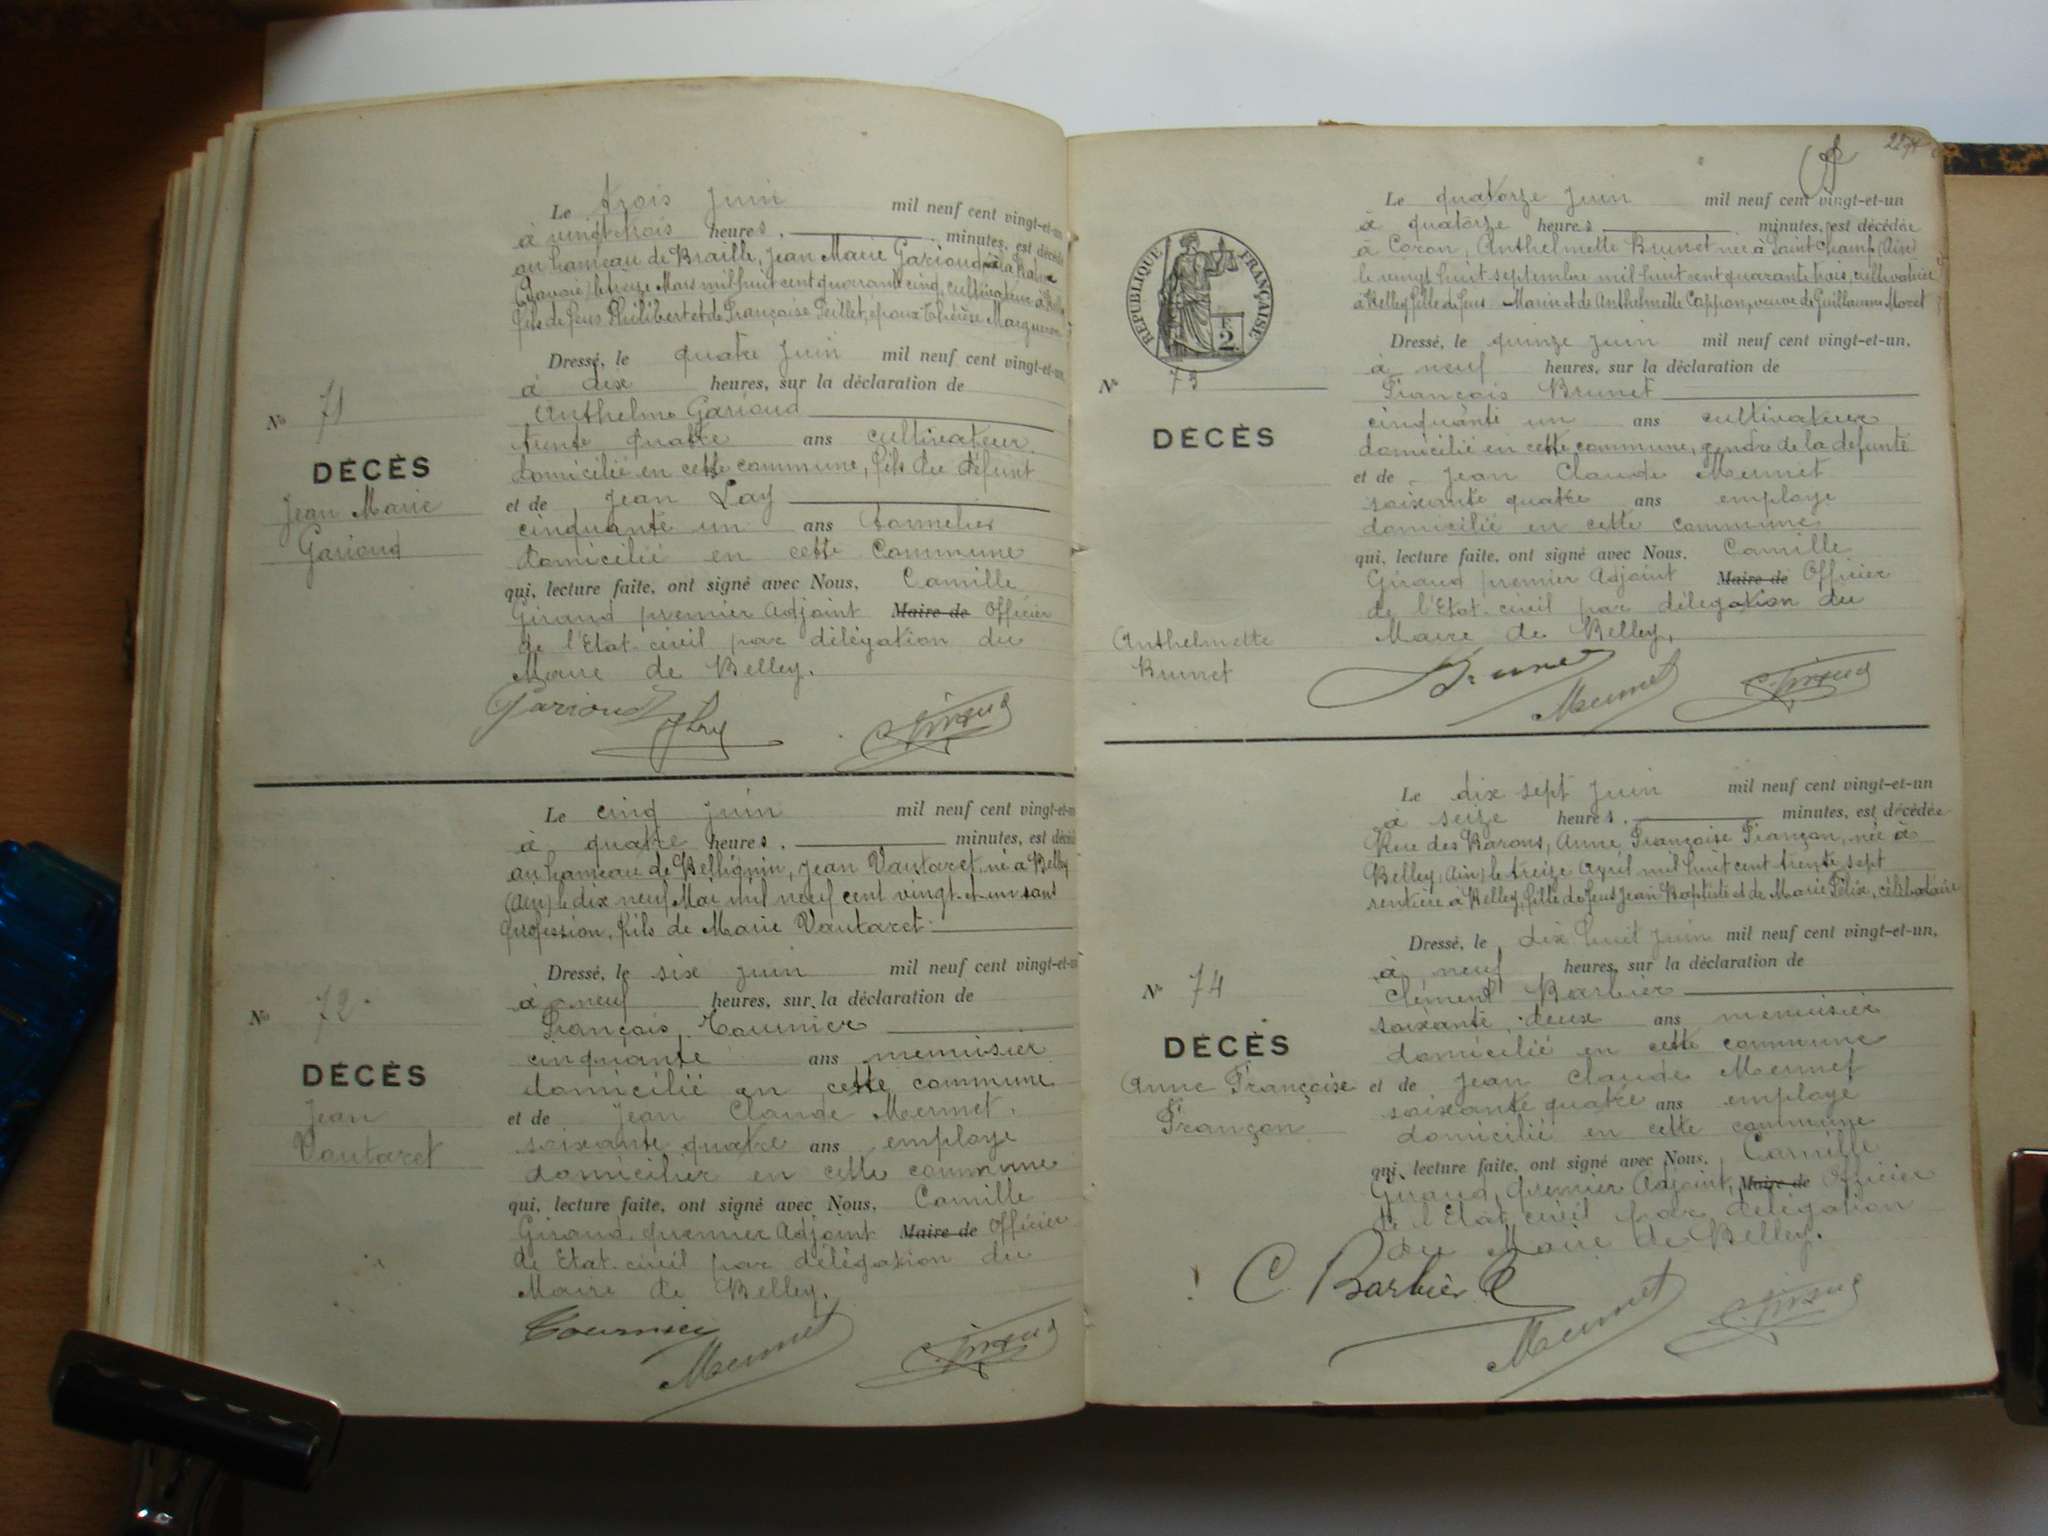 Le trois Juin mil neuf cent vingt-et-un
à vingt trois heures, minutes, est décédé
au hameau de Braille, Jean Marie Garioud
(Savoie) le treize Mars mil huit cent quarante cinq, cultivateur à
fils de feus Philibert et de Françoise Peillet, époux Thérèse Margueron
Dressé, le quatre Juin mil neuf cent vingt-et-un,
à dix heures, sur la déclaration de
Anthelme Garioud
trente quatre ans cultivateur
domicilié en cette commune, fils du défunt
et de Jean Lay
cinquante un ans tonnelier
domicilié en cette commune
qui, lecture faite, ont signé avec Nous, Camille
Giraud premier Adjoint Maire de Officier
de l'Etat-civil par délégation du
Maire de Belley.
Garioud JLay C. Giraud
No 71
DÉCÈS
Jean Marie
Garioud
Le cinq juin mil neuf cent vingt-et-un
à quatre heures, minutes, est décédé
au hameau de Bellignin, Jean Vautaret, né à Belley
(Ain) le dix neuf Mai mil neuf cent vingt-et-un sans
profession, fils de Marie Vautaret.
Dressé, le six juin mil neuf cent vingt-et-un
à neuf heures, sur la déclaration de
François Tournier
cinquante ans menuisier
domicilié en cette commune
et de Jean Claude Mermet.
soixante quatre ans employé
domicilier en cette commune
qui, lecture faite, ont signé avec Nous, Camille
Giraud, premier Adjoint Maire de Officier
de Etat-civil par délégation du
Maire de Belley.
Tournier Mermet C. Giraud
No 72.
DÉCÈS
Jean
Vautaret
Le quatorze Juin mil neuf cent vingt-et-un
à quatorze heures minutes, est décédée
à Coron, Anthelmette Brunet née à Saint Champ (Ain)
le vingt huit septembre mil huit cent quarante trois, cultivatrice
à Belley fille de feus Marin et de Anthelmette Cappon, veuve de Guillaume Moret
Dressé, le quinze juin mil neuf cent vingt-et-un,
à neuf heures, sur la déclaration de
François Brunet
cinquante un ans cultivateur
domicilié en cette commune, gendre de la défunte
et de Jean Claude Mermet
soixante quatre ans employé
domicilié en cette commune
qui, lecture faite, ont signé avec Nous, Camille
Giraud premier Adjoint Maire de Officier
de l'Etat-civil par délégation du
Maire de Belley.
Brunet Mermet C. Giraud
RÉPUBLIQUE FRANÇAISE
2
No 73
DÉCÈS
Anthelmette
Brunet
Le dix sept Juin mil neuf cent vingt-et-un
à seize heures, minutes, est décédée
Rue des Barons, Anne Françoise Françon, née à
Belley (Ain) le treize Avril mil huit cent trente sept
rentière à Belley, fille de feus Jean Baptiste et de Marie Félix, célibataire
Dressé, le dix huit Juin mil neuf cent vingt-et-un,
à neuf heures, sur la déclaration de
Clément Barbier
soixante deux ans menuisier
domicilié en cette commune
et de Jean Claude Mermet
soixante quatre ans employé
domicilié en cette commune
qui, lecture faite, ont signé avec Nous, Camille
Giraud, premier Adjoint, Maire de Officier
de l'Etat civil par délégation
du Maire de Belley.
C. Barbier Mermet C. Giraud
No 74
DÉCÈS
Anne Françoise
Françon